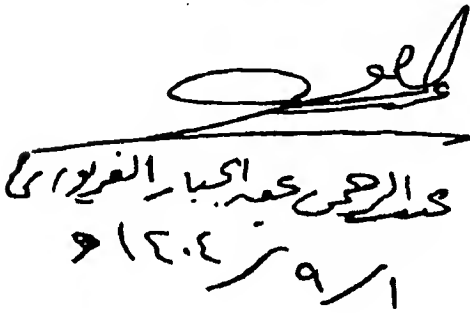 عبدالرحمن عبدالجبار الفريوائي
١ / ٩ / ١٤٠٤ هـ